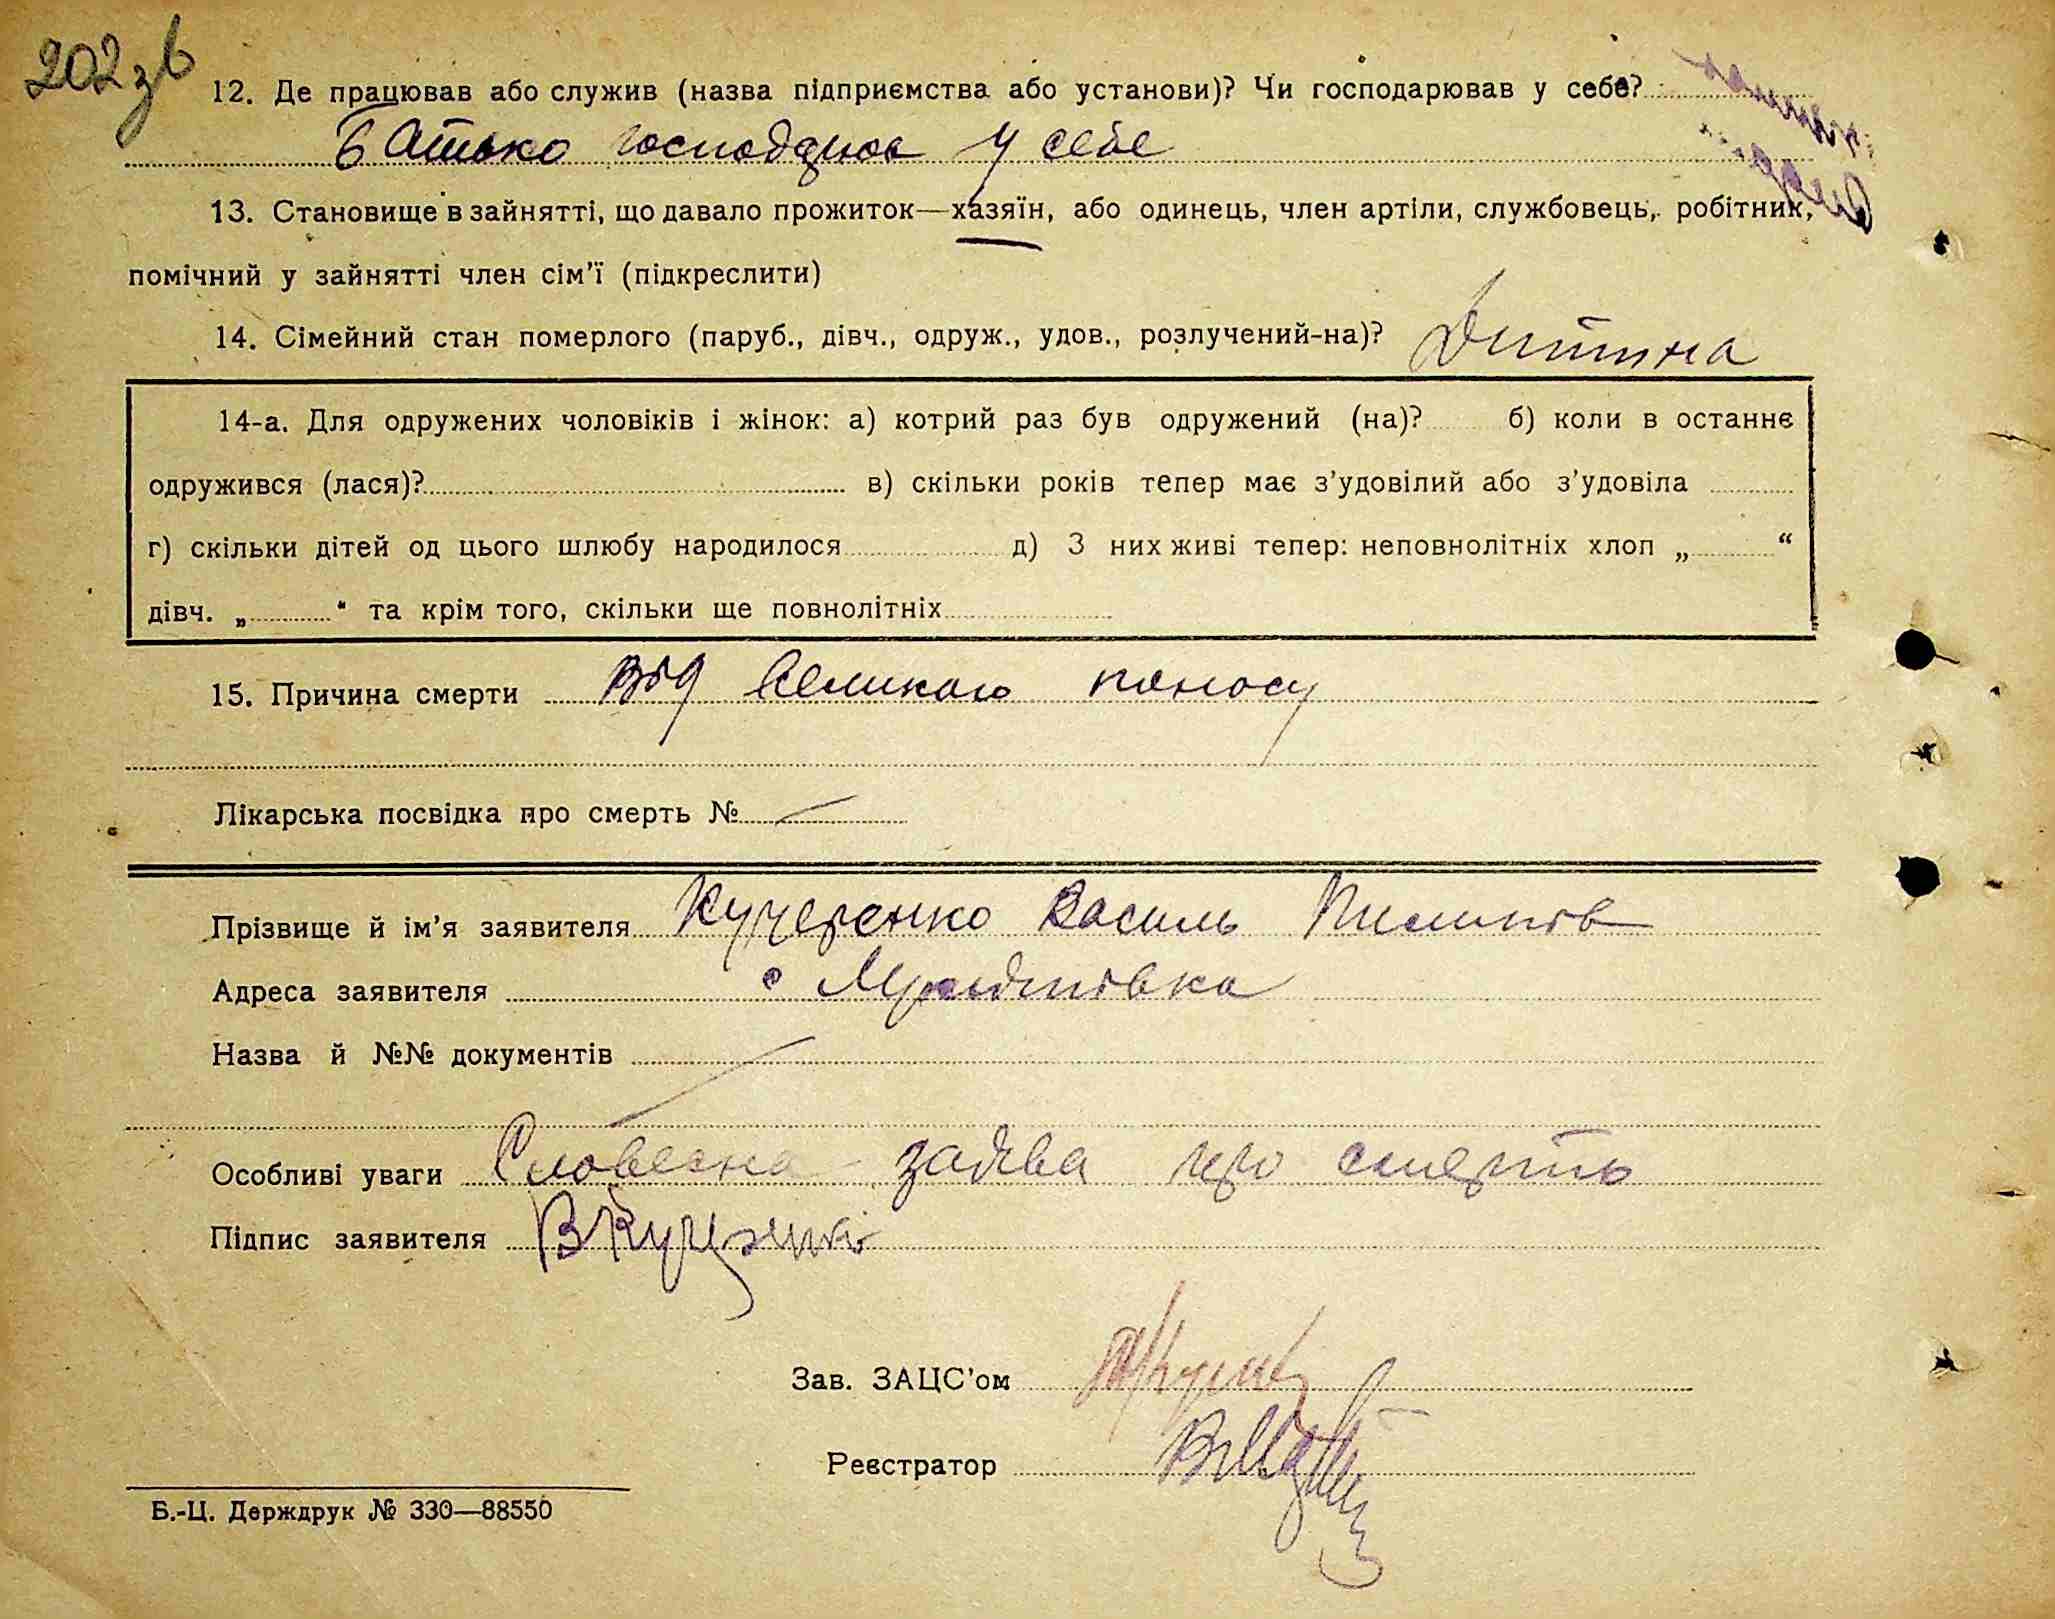 202 зв
12. Де працював або служив (назва підприємства або установи)? Чи господарював у себе?
Батько господарює у себе
13. Становище в зайнятті, що давало прожиток—хазяїн, або одинець, член артіли, службовець, робітник,
помічний у зайнятті член сім'ї (підкреслити)
14. Сімейний стан померлого (паруб., дівч., одруж., удов., розлучений-на)? Дитина
14-а. Для одружених чоловіків і жінок: а) котрий раз був одружений (на)? б) коли в останнє
одружився (лася)? в) скільки років тепер має з'удовілий або з'удовіла
г) скільки дітей од цього шлюбу народилося д) З них живі тепер: неповнолітніх хлоп „ “
дівч. „ “ та крім того, скільки ще повнолітніх
15. Причина смерти від великого поносу
Лікарська посвідка про смерть № —
Прізвище й ім'я заявителя Кучеренко Василь Пилипів
Адреса заявителя с
Назва й №№ документів —
Особливі уваги Словесна заява про смерть
Підпис заявителя
Зав. ЗАЦС'ом
Реєстратор
Б.-Ц. Держдрук № 330—88550